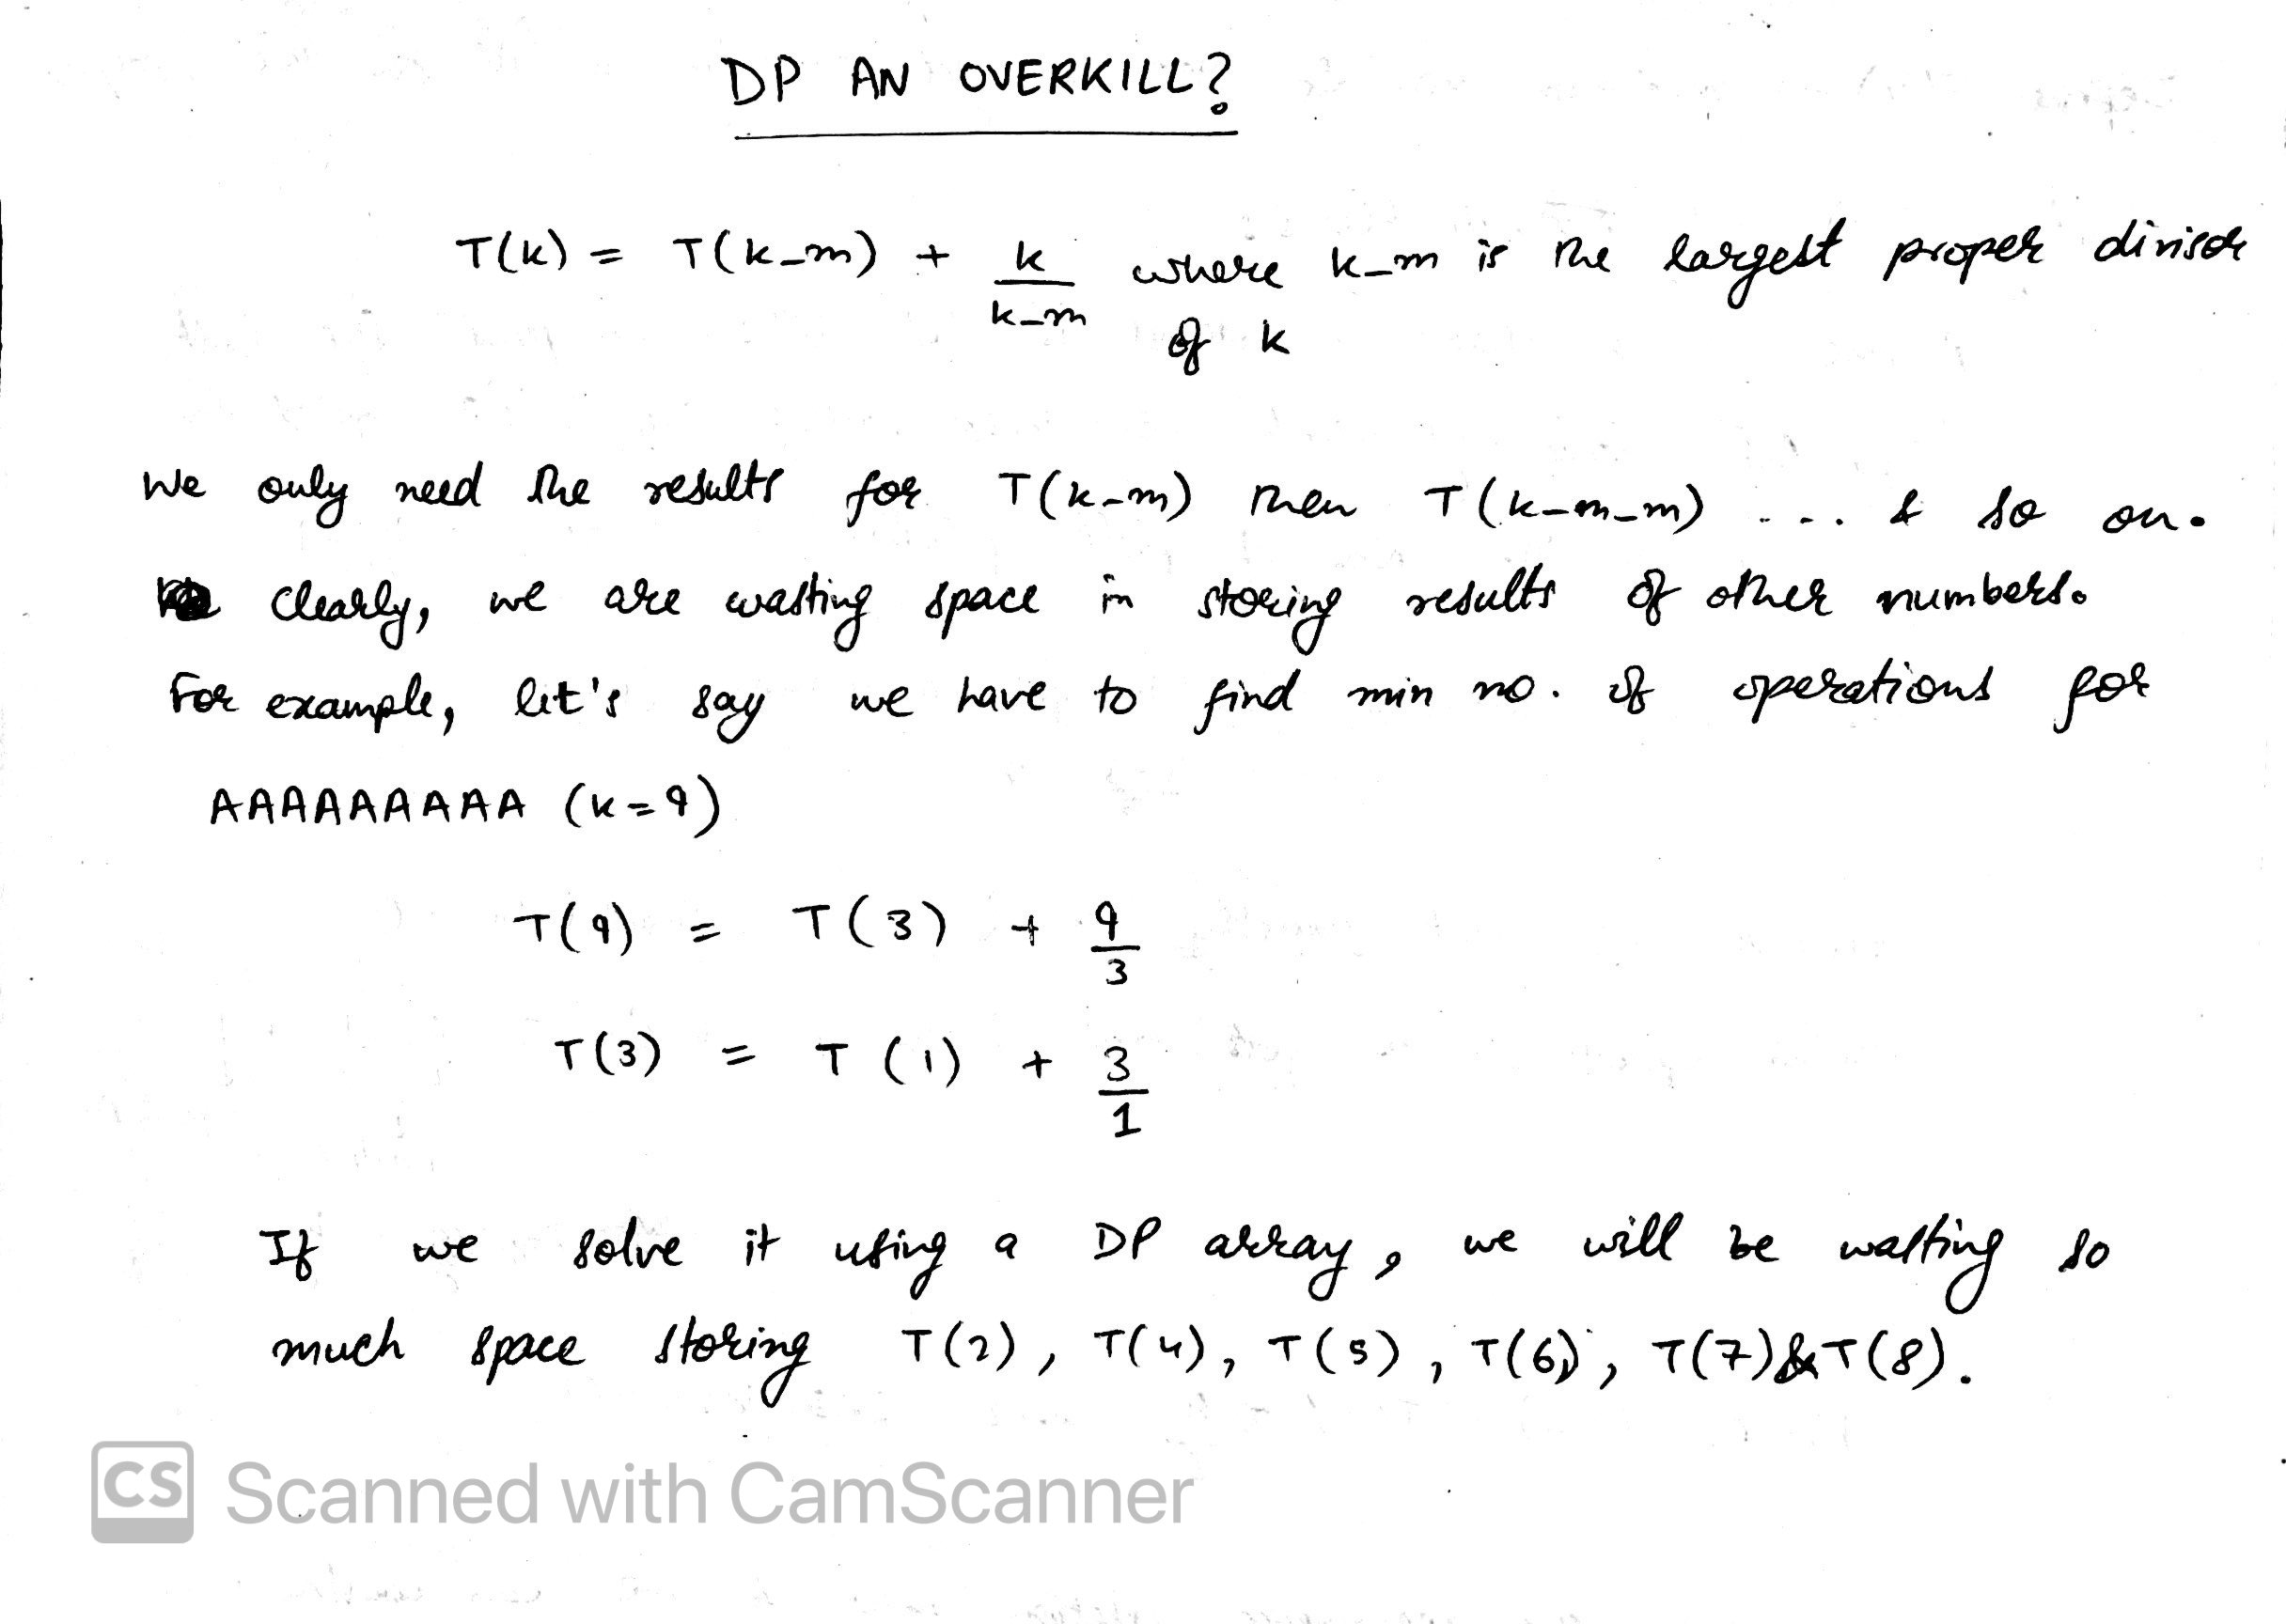 DP AN OVERKILL?
T(k) = T(k_m) + k/k_m where k_m is the largest proper divisor
of k
We only need the results for T(k_m) then T(k_m_m) ... & so on.
clearly, we are wasting space in storing results of other numbers.
For example, let's say we have to find min no. of operations for
AAAAAAAAA (k=9)
T(9) = T(3) + 9/3
T(3) = T(1) + 3/1
If we solve it using a DP array, we will be wasting so
much space storing T(2), T(4), T(5), T(6), T(7) & T(8).
CS Scanned with CamScanner